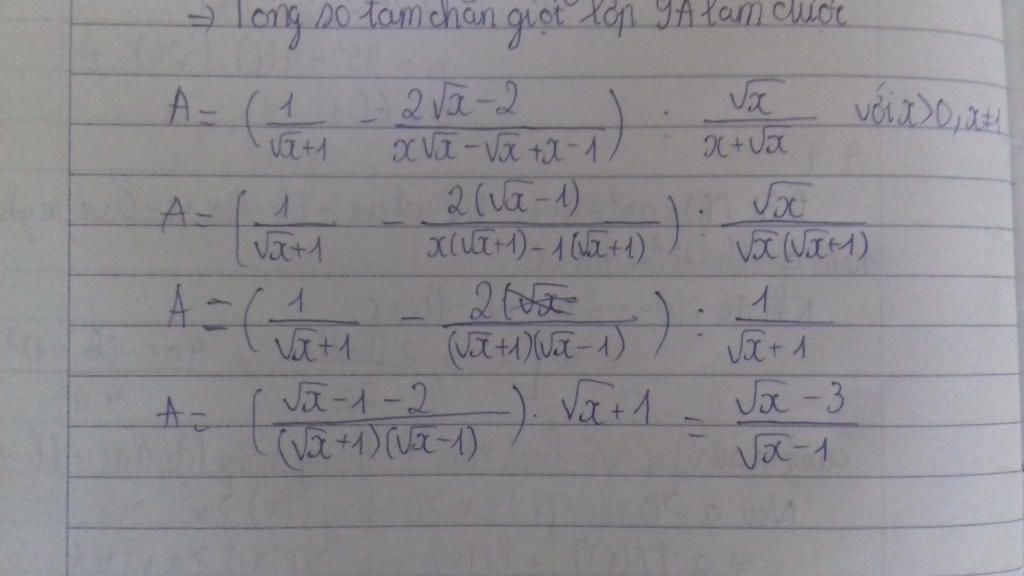 ⇒ Tổng số tấm chắn giọt lớp 9A làm được
A = (1/(√x+1) - (2√x-2)/(x√x-√x+x-1)) : √x/(x+√x) với x>0, x≠1
A = (1/(√x+1) - 2(√x-1)/(x(√x+1)-1(√x+1))) : √x/(√x(√x+1))
A = (1/(√x+1) - 2/((√x+1)(√x-1))) : 1/(√x+1)
A = ((√x-1-2)/((√x+1)(√x-1))) . √x+1 = (√x-3)/(√x-1)